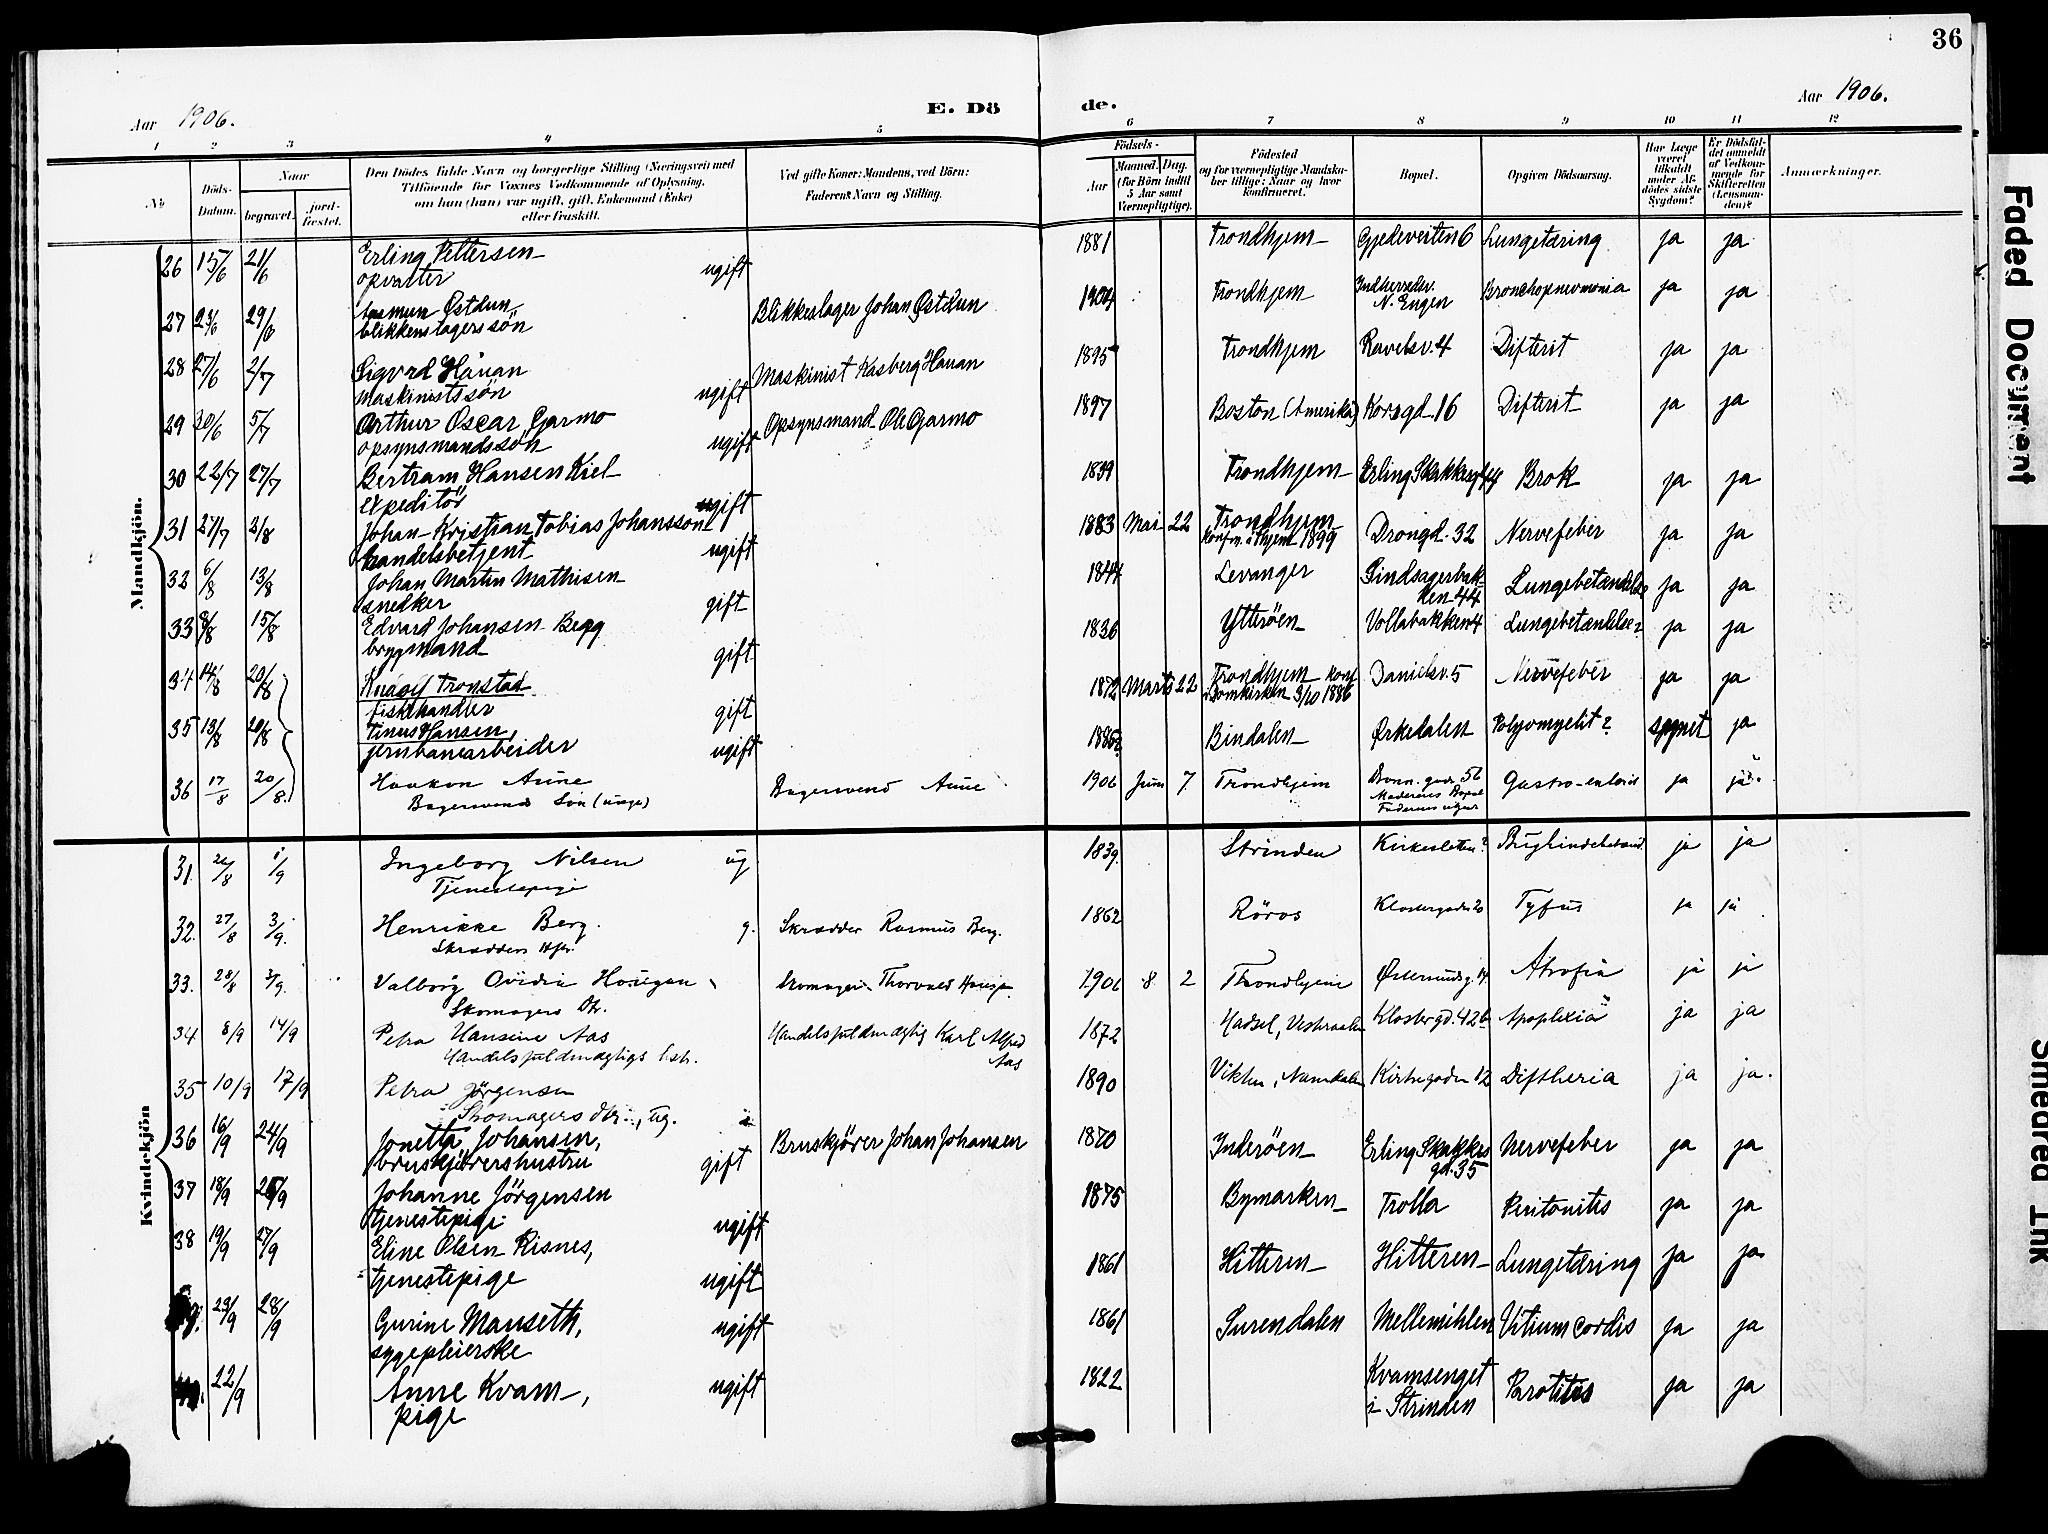 36
Aar 1906.
E. Dö
de.
Aar 1906.
1 2 3 4 5 6 7 8 9 10 11 12
No
Döds-Datum.
Naar
begravet.
jord-fæstet.
Den Dödes fulde Navn og borgerlige Stilling (Næringsvei) med
Tilföiende for Voxnes Vedkommende af Oplysning,
om han (hun) var ugift, gift, Enkemand (Enke)
eller fraskilt.
Ved gifte Koner: Mandens, ved Börn:
Faderens Navn og Stilling.
Födsels-
Aar
Maaned. Dag.
(for Börn indtil
5 Aar samt
Værnepligtige).
Födested
og for værnepligtige Mandska-
ber tillige: Naar og hvor
konfirmeret.
Bopæl.
Opgiven Dödsaarsag.
Har Læge
været
tilkaldt
under Af-
dödes sidste
Sygdom?
Er Dödsfal-
det anmeldt
af Vedkom-
mende for
Skifteretten
(Lensman-
den)?
Anmærkninger.
Mandkjön.
26 15/6 21/6 Erling Pettersen opvarter ugift 1881 Trondhjem Gjedeveiten 6 Lungetæring ja ja
27 23/6 29/6 Aasmun Østdun blikkenslagerssön Blikkeslager Johan Østdun 1904 Trondhjem N. Engen Bronchopneumonia ja ja
28 27/6 2/7 Sigvad Hauan maskinistssön ugift Maskinist Kasberg Hauan 1895 Trondhjem Ravelsv. 4 Difterit ja ja
29 30/6 5/7 Arthur Oscar Garmo opsynsmandssön ugift Opsynsmand Ole Garmo 1897 Boston (Amerika) Korsgd. 16 Difterit ja ja
30 22/7 27/7 Bertram Hansen Kiel expeditör gift 1839 Trondhjem Erling Skakkesgd Brok ja ja
31 27/7 2/8 Johan Kristian Tobias Johansson handelsbetjent ugift 1883 Mai 22 Trondhjem konfm. i Thjem 1899 Drongd. 32 Nervefeber ja ja
32 6/8 13/8 Johan Martin Mathisen snedker gift 1844 Levanger Sindsagerbakken 44 Lungebetændelse ja ja
33 8/8 15/8 Edvard Johansen Berg brygmand gift 1836 Ytterøen Vollabakken 4 Lungebetændelse ja ja
34 14/8 20/8 Tronstad fiskehandler gift 1872 Marts 22 Trondhjem konf i Domkirken 3/10 1886 Danielsv. 5 Nervefeber ja ja
35 13/8 20/8 Tinus Hansen, jernbanearbeider ugift Bindalen Orkedalen Polyomyelit? synet ja
36 17/8 20/8. Haakon Aune Bagersvends Søn Bagersvend Aune 1906 Juni 7 Trondhjem Dronn. gade 56 Moderens Bopæl Gastro-enterit ja ja.
Kvindekjön
31 26/8 1/9 Ingeborg Nilsen Tjenestepige ug 1839. Strinden Kirkesletten? ja ja
32. 27/8 3/9. Henrikke Berg. Skrædders Hstr. g. Skrædder Rasmus Berg. 1862 Röros Klostergaden 20 Tyfus ja ja
33. 28/8 3/9. Valborg Ovidia Skomagers Dtr. Skomager Thorvald 1906 8 2 Trondhjem Østersundsg. 14 Atrofia ja ja
34 8/9 14/9 Petra Hansine Aas Handelsfuldmægtigs Handelsfuldmægtig Karl Alfred Aas 1872 Hadsel, Vesteraalen Klostergd. 42b Apoplexia ja ja
35 10/9 17/9 Petra Jörgensen Skomagers dtr., ug. 1890 Vikten, Namdalen Kirkegaden 12 Diftheria ja ja.
36 16/9 24/9 Jonetta Johansen, bruskjørershustru gift Bruskjører Johan Johansen 1870 Inderöen Erling Skakkes gd. 35 Nervefeber ja ja
37 18/9 Johanne Jörgensen tjenestepige ugift 1875 Bymarken Trolla Peritonitis ja ja
38 19/9 27/9 Eline Olsen Risnes, tjenestepige ugift 1861 Hitteren Hitteren Lungetæring ja ja
23/9 28/9 Gurine Mauseth, sygepleierske ugift 1861 Surendalen Mellemihlen Vitium cordis ja ja
22/9 Anne Kvam, pige ugift 1822 Kvamsenget i Strinden Parotitis ja ja
Faded Document
Smeared Ink